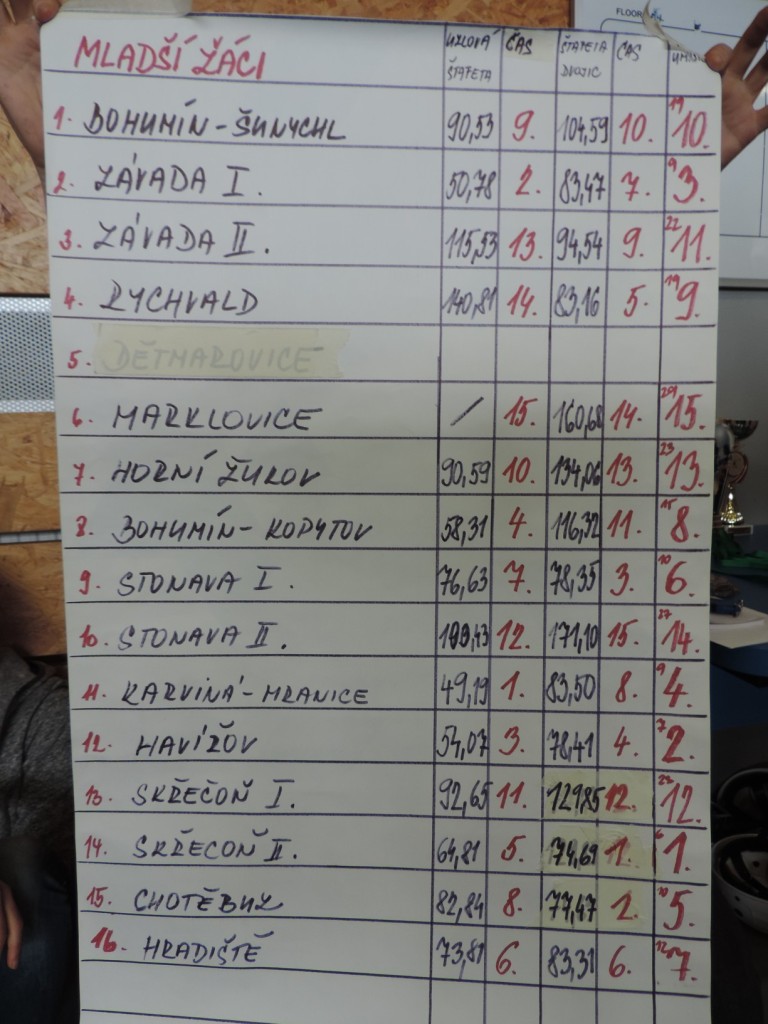 FLOOR
MLADŠÍ ŽÁCI UZLOVÁ ŠTAFETA ČAS ŠTAFETA DVOJIC ČAS
1. BOHUMÍN-ŠUNYCHL 90,53 9. 104,59 10. 19 10.
2. ZÁVADA I. 50,78 2. 83,47 7. 9 3.
3. ZÁVADA II. 115,53 13. 94,54 9. 22 11.
4. RYCHVALD 140,81 14. 83,16 5. 19 9.
5. DĚTMAROVICE
6. MARKLOVICE / 15. 160,68 14. 29 15.
7. HORNÍ ŽUKOV 90,59 10. 134,06 13. 23 13.
8. BOHUMÍN-KOPYTOV 58,31 4. 116,32 11. 15 8.
9. STONAVA I. 76,63 7. 78,35 3. 10 6.
10. STONAVA II. 12. 171,10 15. 27 14.
11. KARVINÁ-HRANICE 49,19 1. 83,50 8. 9 4.
12. HAVÍŘOV 54,07 3. 78,41 4. 7 2.
13. SKŘEČOŇ I. 92,65 11. 129,85 12. 12.
14. SKŘEČOŇ II. 64,81 5. 74,69 1. 6 1.
15. CHOTĚBUZ 82,84 8. 77,47 2. 10 5.
16. HRADIŠTĚ 73,81 6. 83,31 6. 12 7.